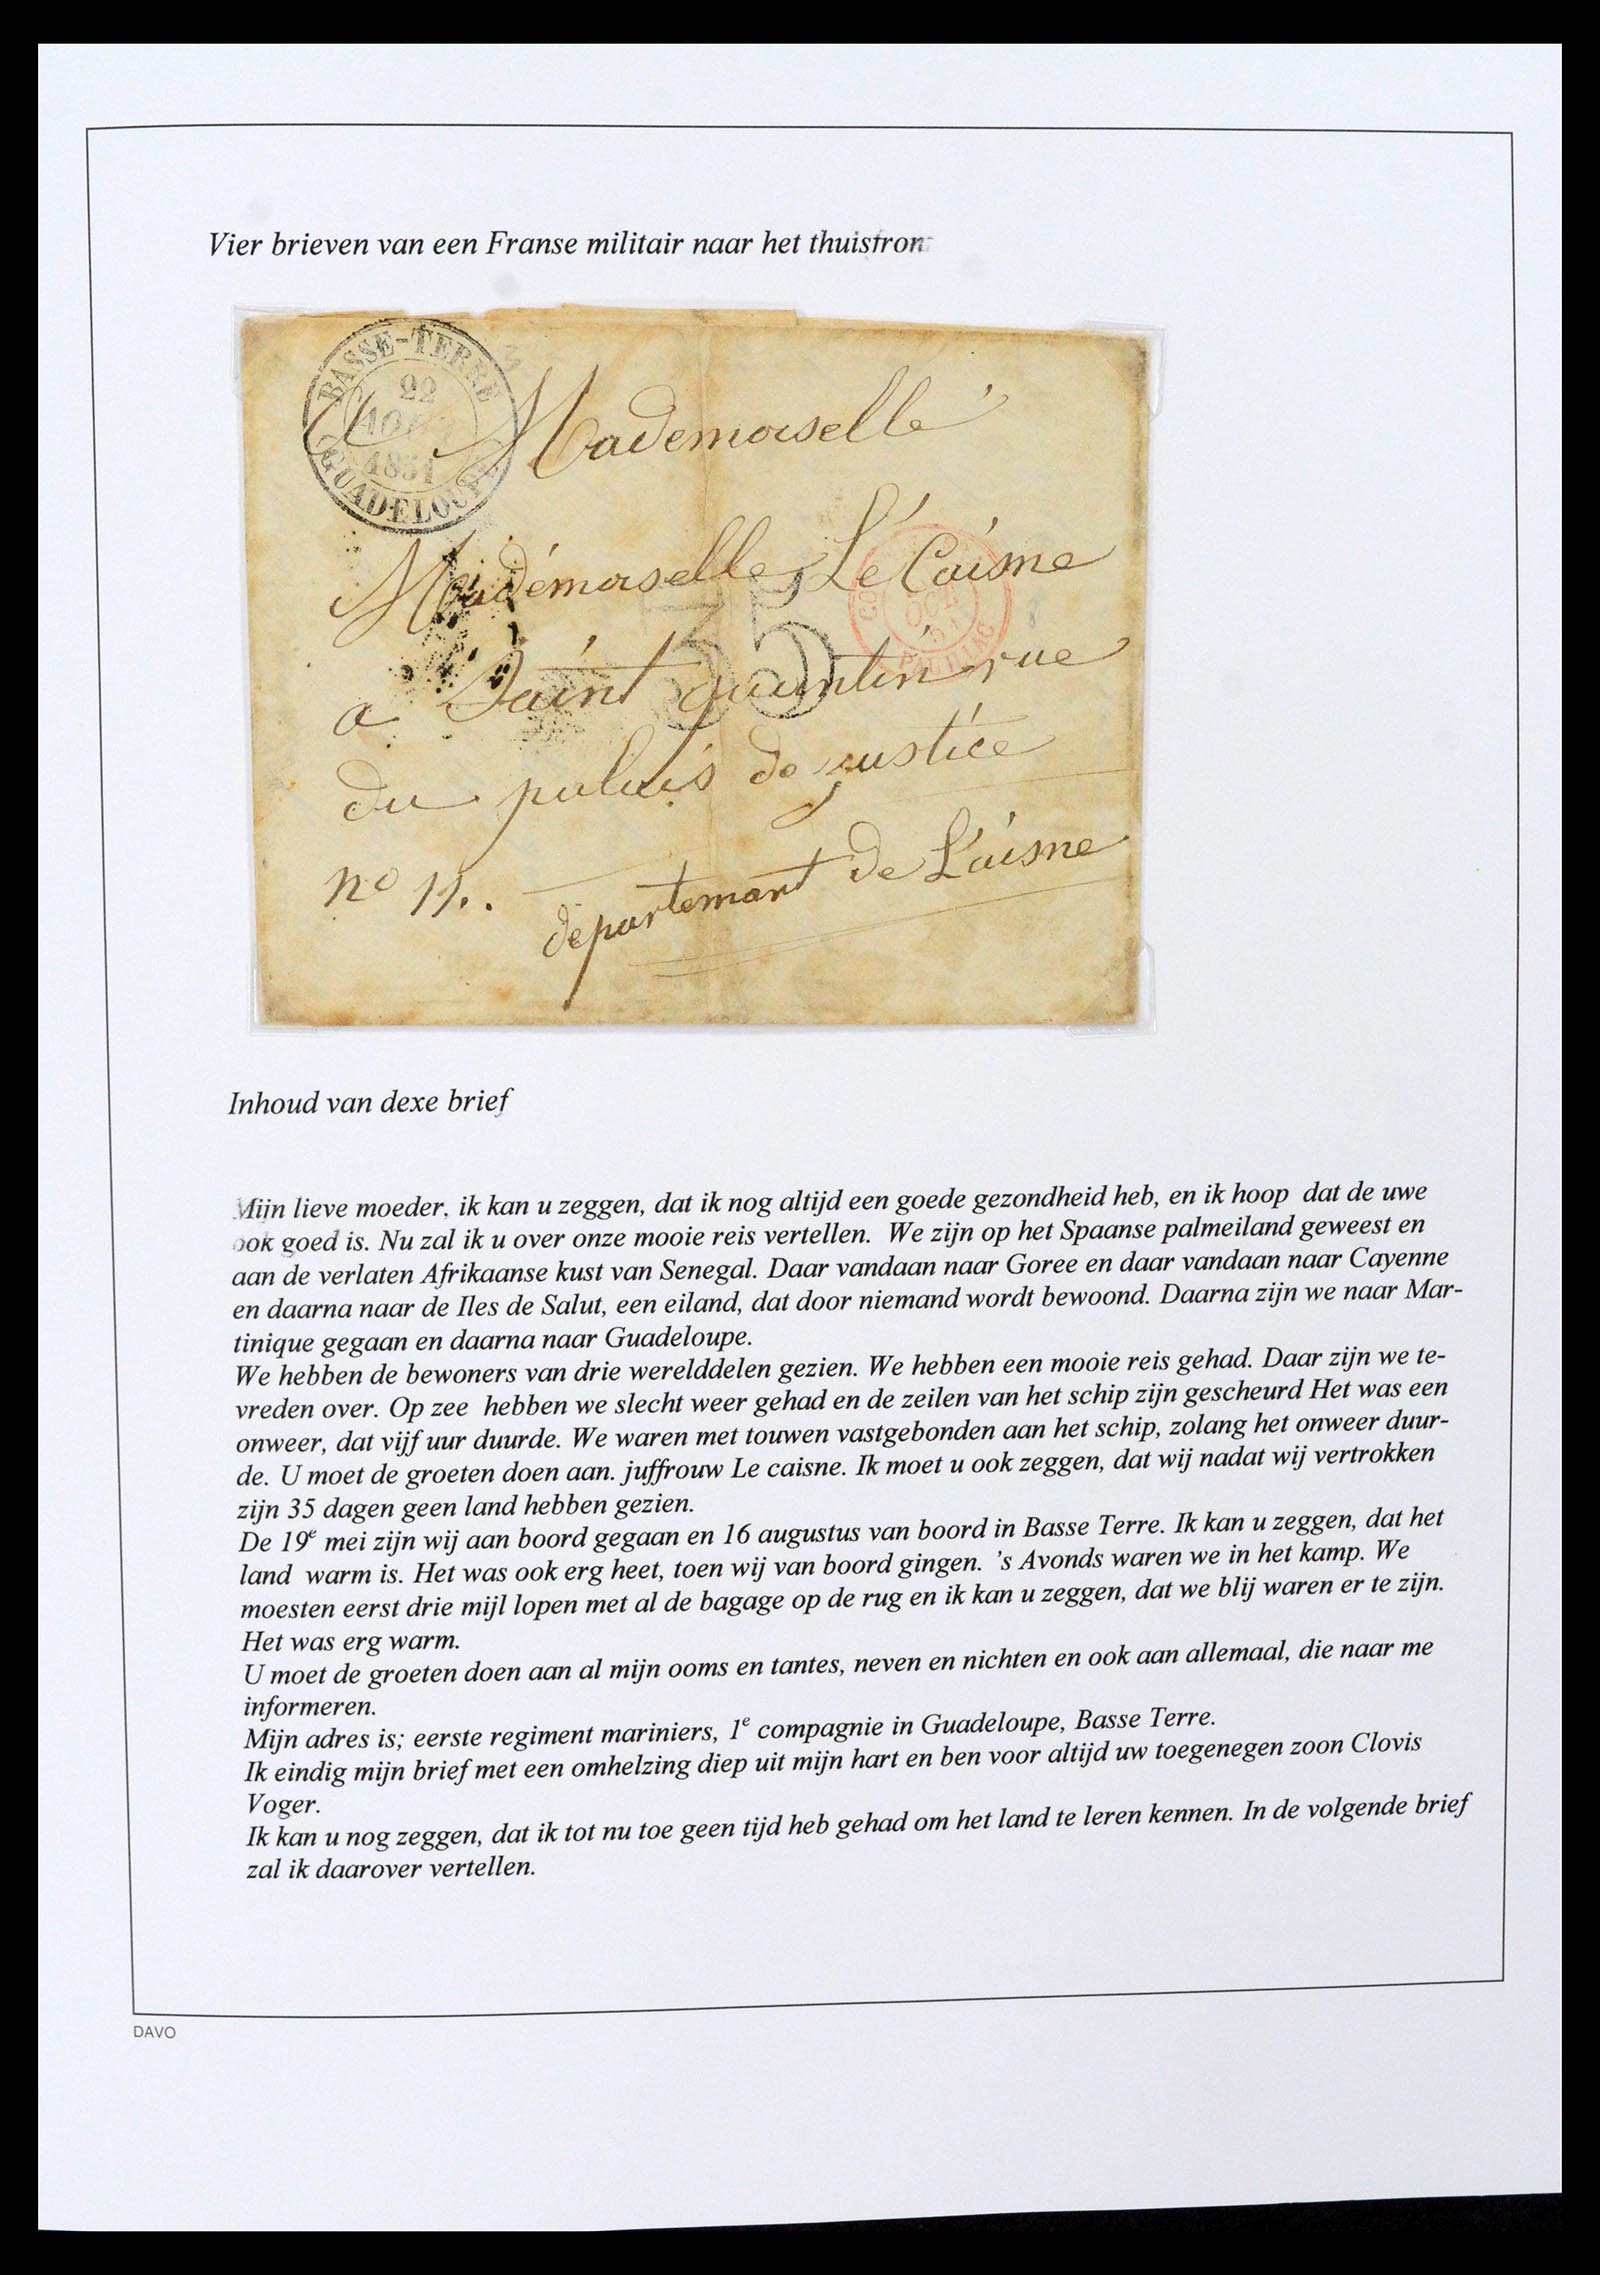 Vier brieven van een Franse militair naar het thuisfron
BASSE-TERRE
22
AOUT
1851
GUADELOUPE
A Mademoiselle
Mademoiselle Le Caisne
35
OCT
51
PAUILLAC
a Saint quintin rue
du palais de justice
no 11.. departemant de L'aisne
Inhoud van dexe brief
Mijn lieve moeder, ik kan u zeggen, dat ik nog altijd een goede gezondheid heb, en ik hoop dat de uwe
ook goed is. Nu zal ik u over onze mooie reis vertellen. We zijn op het Spaanse palmeiland geweest en
aan de verlaten Afrikaanse kust van Senegal. Daar vandaan naar Goree en daar vandaan naar Cayenne
en daarna naar de Iles de Salut, een eiland, dat door niemand wordt bewoond. Daarna zijn we naar Mar-
tinique gegaan en daarna naar Guadeloupe.
We hebben de bewoners van drie werelddelen gezien. We hebben een mooie reis gehad. Daar zijn we te-
vreden over. Op zee hebben we slecht weer gehad en de zeilen van het schip zijn gescheurd Het was een
onweer, dat vijf uur duurde. We waren met touwen vastgebonden aan het schip, zolang het onweer duur-
de. U moet de groeten doen aan. juffrouw Le caisne. Ik moet u ook zeggen, dat wij nadat wij vertrokken
zijn 35 dagen geen land hebben gezien.
De 19e mei zijn wij aan boord gegaan en 16 augustus van boord in Basse Terre. Ik kan u zeggen, dat het
land warm is. Het was ook erg heet, toen wij van boord gingen. 's Avonds waren we in het kamp. We
moesten eerst drie mijl lopen met al de bagage op de rug en ik kan u zeggen, dat we blij waren er te zijn.
Het was erg warm.
U moet de groeten doen aan al mijn ooms en tantes, neven en nichten en ook aan allemaal, die naar me
informeren.
Mijn adres is; eerste regiment mariniers, 1e compagnie in Guadeloupe, Basse Terre.
Ik eindig mijn brief met een omhelzing diep uit mijn hart en ben voor altijd uw toegenegen zoon Clovis
Voger.
Ik kan u nog zeggen, dat ik tot nu toe geen tijd heb gehad om het land te leren kennen. In de volgende brief
zal ik daarover vertellen.
DAVO